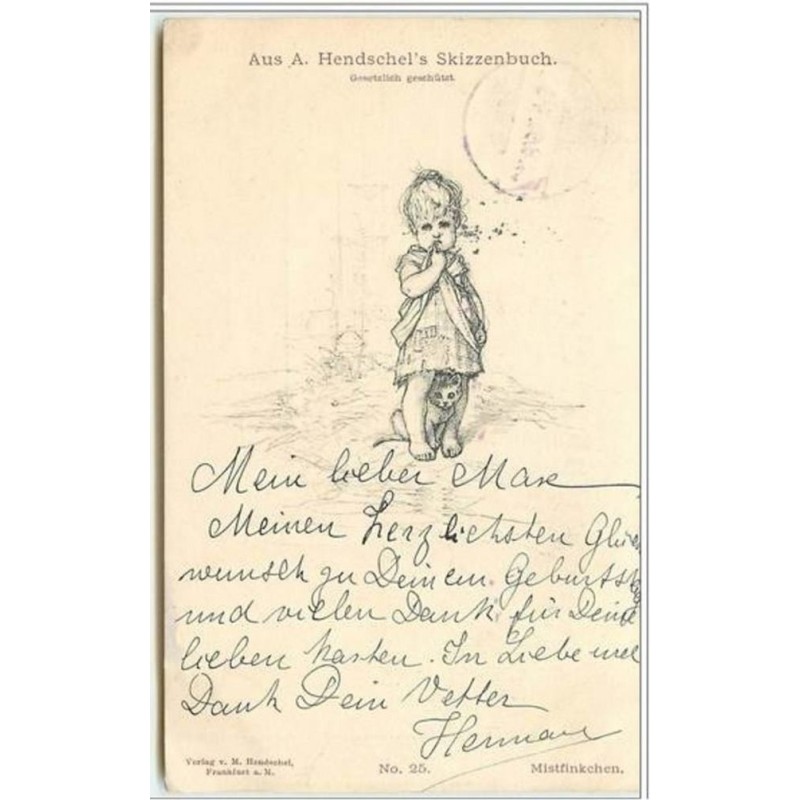 Aus A. Hendschel's Skizzenbuch.
Gesetzlich geschützt.
Mein lieber Max
Meinen herzlichsten Glück
wunsch zu Deinem Geburtstag
und vielen Dank für Deine
lieben Karten. In Liebe und
Dank Dein Vetter
Hermann
Verlag v. M. Hendschel,
Frankfurt a. M.
No. 25.
Mistfinkchen.